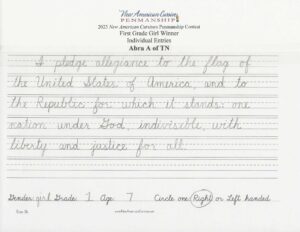 New American Cursive
PENMANSHIP
2023 New American Cursive Penmanship Contest
First Grade Girl Winner
Individual Entries
Abra A of TN
I pledge allegiance to the flag of
the United States of America, and to
the Republic for which it stands: one
nation under God, indivisible, with
liberty and justice for all.
Gender: girl Grade: 1 Age: 7 Circle one: Right or Left handed